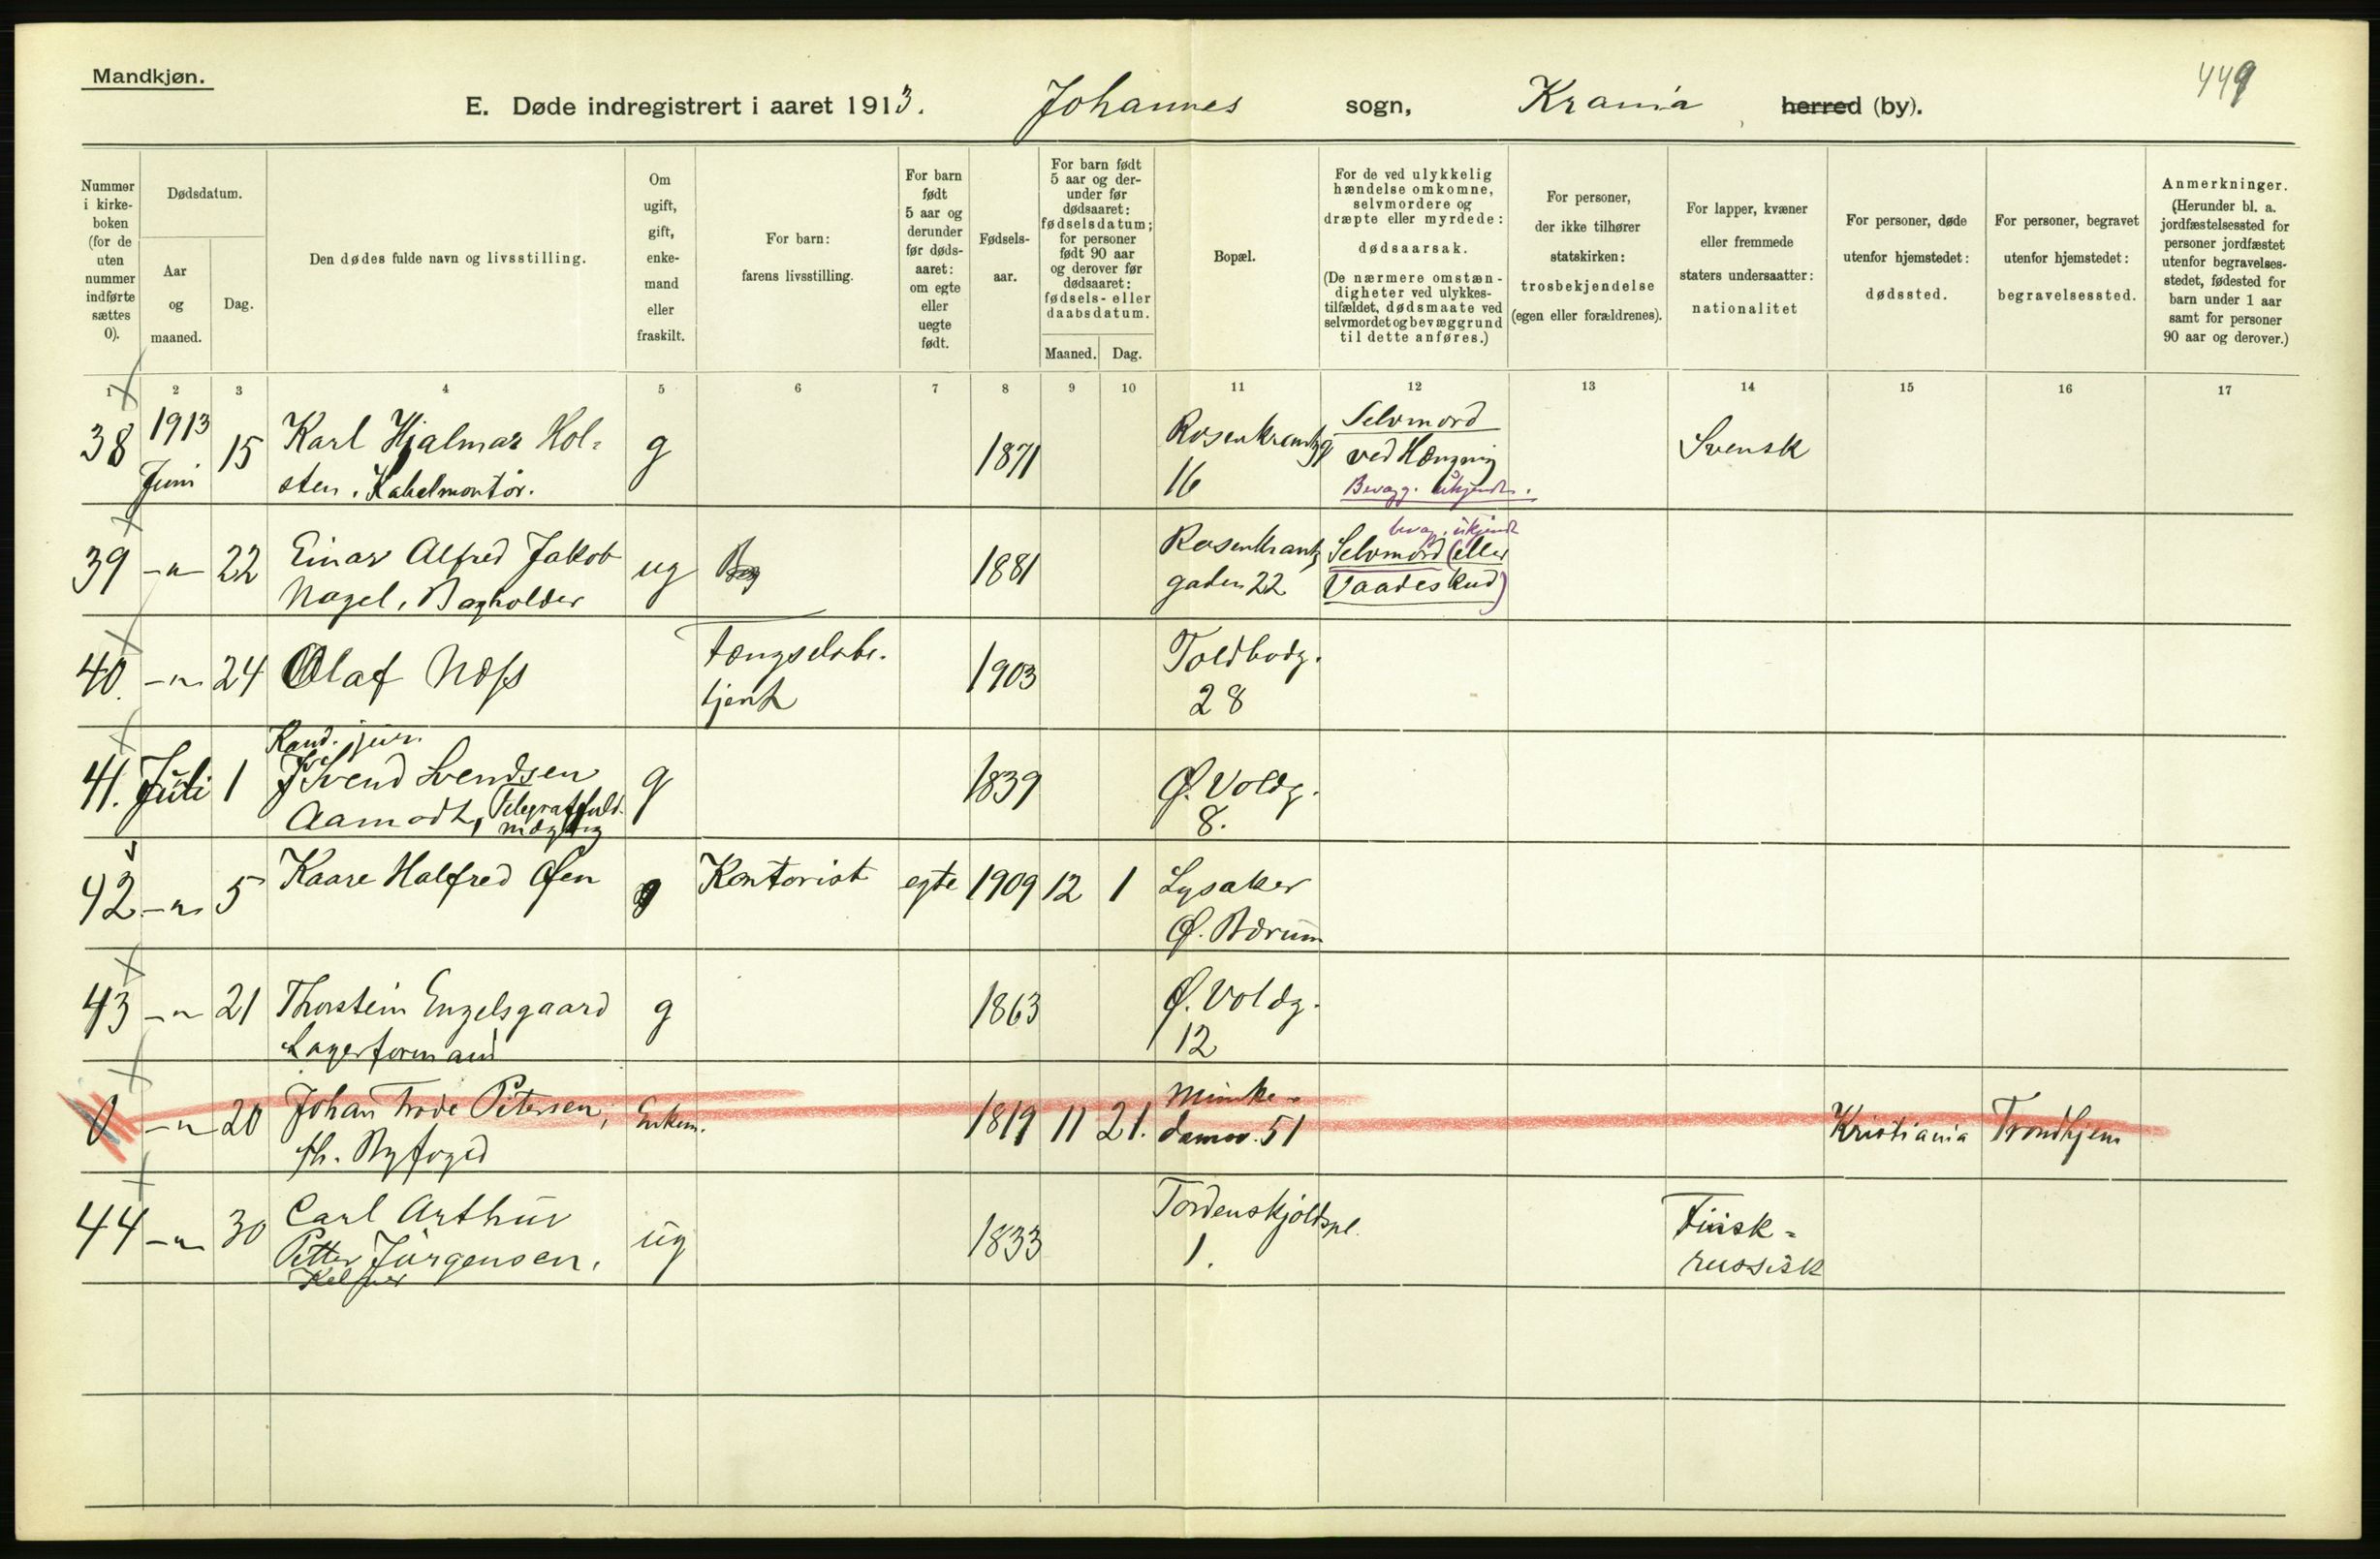 Mandkjøn.
449
E. Døde indregistrert i aaret 1913. Johannes sogn, Krania herred (by).
Nummer i kirke-boken (for de uten nummer indførte sættes 0).
Dødsdatum.
Aar og maaned.
Dag.
Den dødes fulde navn og livsstilling.
Om ugift, gift, enke-mand eller fraskilt.
For barn: farens livsstilling.
For barn født 5 aar og derunder før døds-aaret: om egte eller uegte født.
Fødsels-aar.
For barn født 5 aar og der-under før dødsaaret: fødselsdatum; for personer født 90 aar og derover før dødsaaret: fødsels- eller daabsdatum.
Maaned.
Dag.
Bopæl.
For de ved ulykkelig hændelse omkomne, selvmordere og dræpte eller myrdede: dødsaarsak. (De nærmere omstæn-digheter ved ulykkes-tilfældet, dødsmaate ved selvmordet og bevæggrund til dette anføres.)
For personer, der ikke tilhører statskirken: trosbekjendelse (egen eller forældrenes).
For lapper, kvæner eller fremmede staters undersaatter: nationalitet
For personer, døde utenfor hjemstedet: dødssted.
For personer, begravet utenfor hjemstedet: begravelsessted.
Anmerkninger. (Herunder bl. a. jordfæstelsessted for personer jordfæstet utenfor begravelses-stedet, fødested for barn under 1 aar samt for personer 90 aar og derover.)
1 2 3 4 5 6 7 8 9 10 11 12 13 14 15 16 17
38 1913 Juni 15 Karl Hjalmar Hol-
sten. Kabelmontør. g 1871 Rosenkrantzg
16 Selvmord
ved Hængning
Bevægg. ukjendt. Svensk
39 -"- 22 Einar Alfred Jakob
Nagel, Bogholder ug 1881 Rosenkrantz
gaden 22 bevæg. ukjendt
Selvmord (eller
Vaadeskud)
40. -"- 24 Olaf Næss Fængselsbe-
tjent 1903 Toldbodg.
28
41. Juli 1 Kand. jur.
Svend Svendsen
Aamodt, Telegraffuld-
mægtig g 1839 Ø. Voldg.
8.
42 -"- 5 Kaare Halfred Øen Kontorist egte 1909 12 1 Lysaker
Ø. Bærum
43 -"- 21 Thorstein Engelsgaard
Lagerformand g 1863 Ø. Voldg.
12
0 -"- 20 Johan Frode Petersen,
fh. Byfoged Enkem. 1819 11 21. Munke-
damsv. 51 Kristiania Trondhjem
44 -"- 30 Carl Arthur
Petter Jürgensen,
Kelner ug 1833 Tordenskjoldspl.
1. Finsk-
russisk